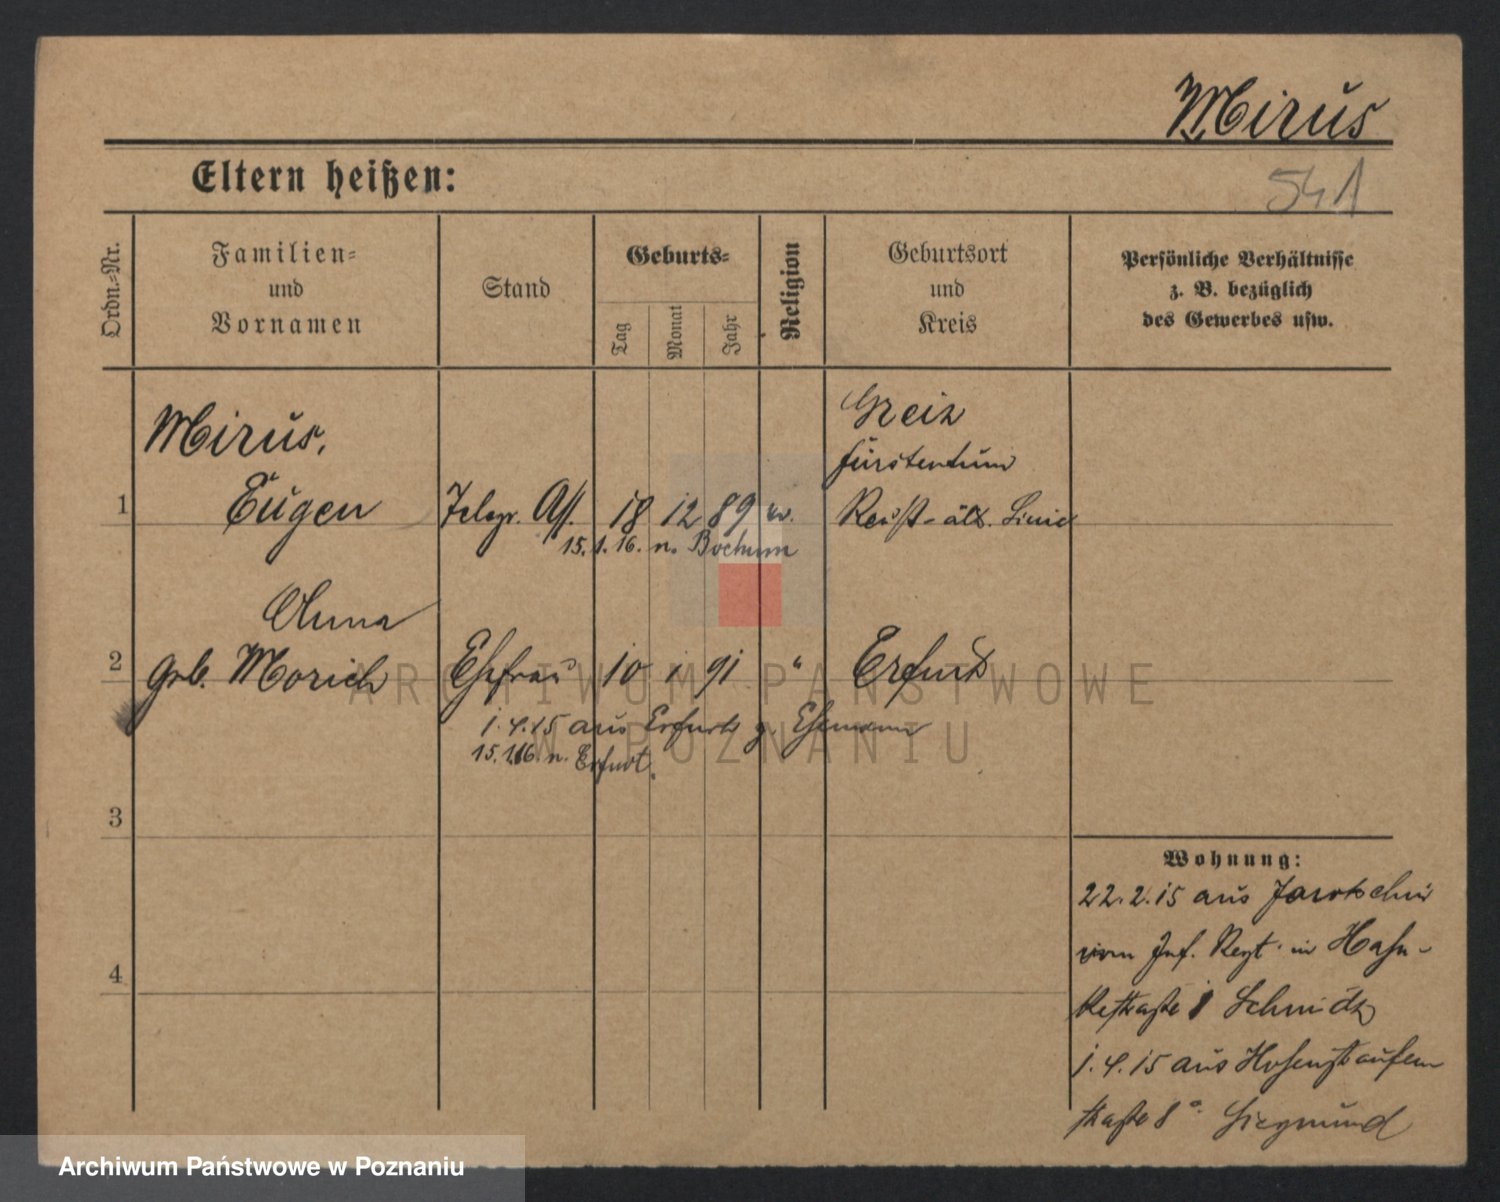 Mirus
Eltern heißen:
541
Ordn.=Nr.
Familien=
und
Vornamen
Stand
Geburts=
Tag
Monat
Jahr
Religion
Geburtsort
und
Kreis
Persönliche Verhältnisse
z. B. bezüglich
des Gewerbes usw.
Mirus,
Greiz
Fürstentum
1 Eugen Telegr. Ass. 18 12 89 ev. Reuß ält. Linie
15.1.16. n. Bochum
Anna
2 geb. Morich Ehefrau 10 1 91 " Erfurt
1.4.15 aus Erfurt z. Ehemann
15.1.16. n. Erfurt.
3
4
Wohnung:
22.2.15 aus Jarotschin
vom Inf. Regt. in
8 Schmidt
1.4.15 aus Hohenstaufen
straße 8a. Siegmund
ARCHIWUM PAŃSTWOWE
W POZNANIU
Archiwum Państwowe w Poznaniu